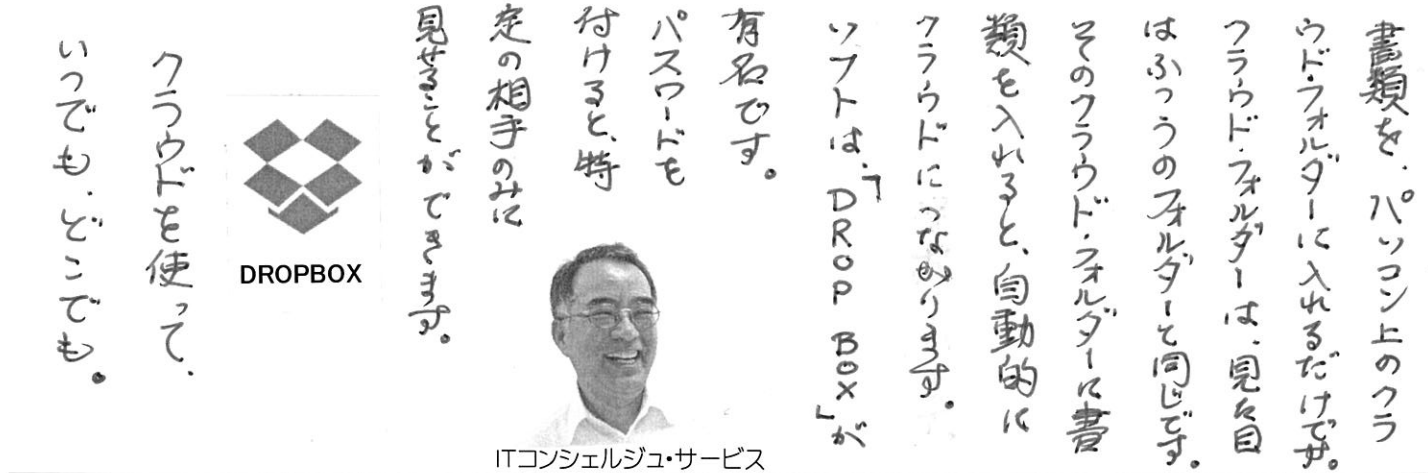 書類を、パソコン上のクラ
ウド・フォルダーに入れるだけです。
クラウド・フォルダーは、見た目
はふつうのフォルダーと同じです。
そのクラウド・フォルダーに書
類を入れると、自動的に
クラウドにつながります。
ソフトは、「DROP BOX」が
有名です。
パスワードを
付けると、特
定の相手のみに
見せることができます。
DROPBOX
ITコンシェルジュ・サービス
クラウドを使って、
いつでも、どこでも。